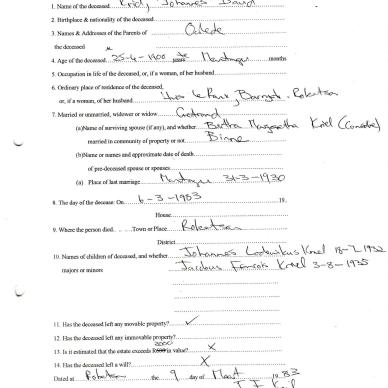 1. Name of the deceased Kriel, Johannes David
2. Birthplace & nationality of the deceased
3. Names & Addresses of the Parents of Oulede
the deceased
4. Age of the deceased 25-4-1900 years Montagu months
5. Occupation in life of the deceased, or, if a woman, of her husband
6. Ordinary place of residence of the deceased
or, if a woman, of her husband Huis Le Roux, Robertson
7. Married or unmarried, widower or widow Getroud
(a)Name of surviving spouse (if any), and whether Bertha Margaretha Kriel (Conradie)
married in community of property or not Binne
(b)Name or names and approximate date of death
of pre-deceased spouse or spouses
(a) Place of last marriage Montagu 31-3-1930
8. The day of the decease: On 6-3-1983 19
House
9. Where the person died Town or Place Robertson
District
10. Names of children of deceased, and whether Johannes Lodewikus Kriel 18-7-1932
majors or minors Jacobus Kriel 3-8-1935
11. Has the deceased left any movable property? ✓
12. Has the deceased left any immovable property?
13. Is it estimated that the estate exceeds 3000 in value? X
14. Has the deceased left a will? X
Dated at Robertson the 9 day of Maart 1983